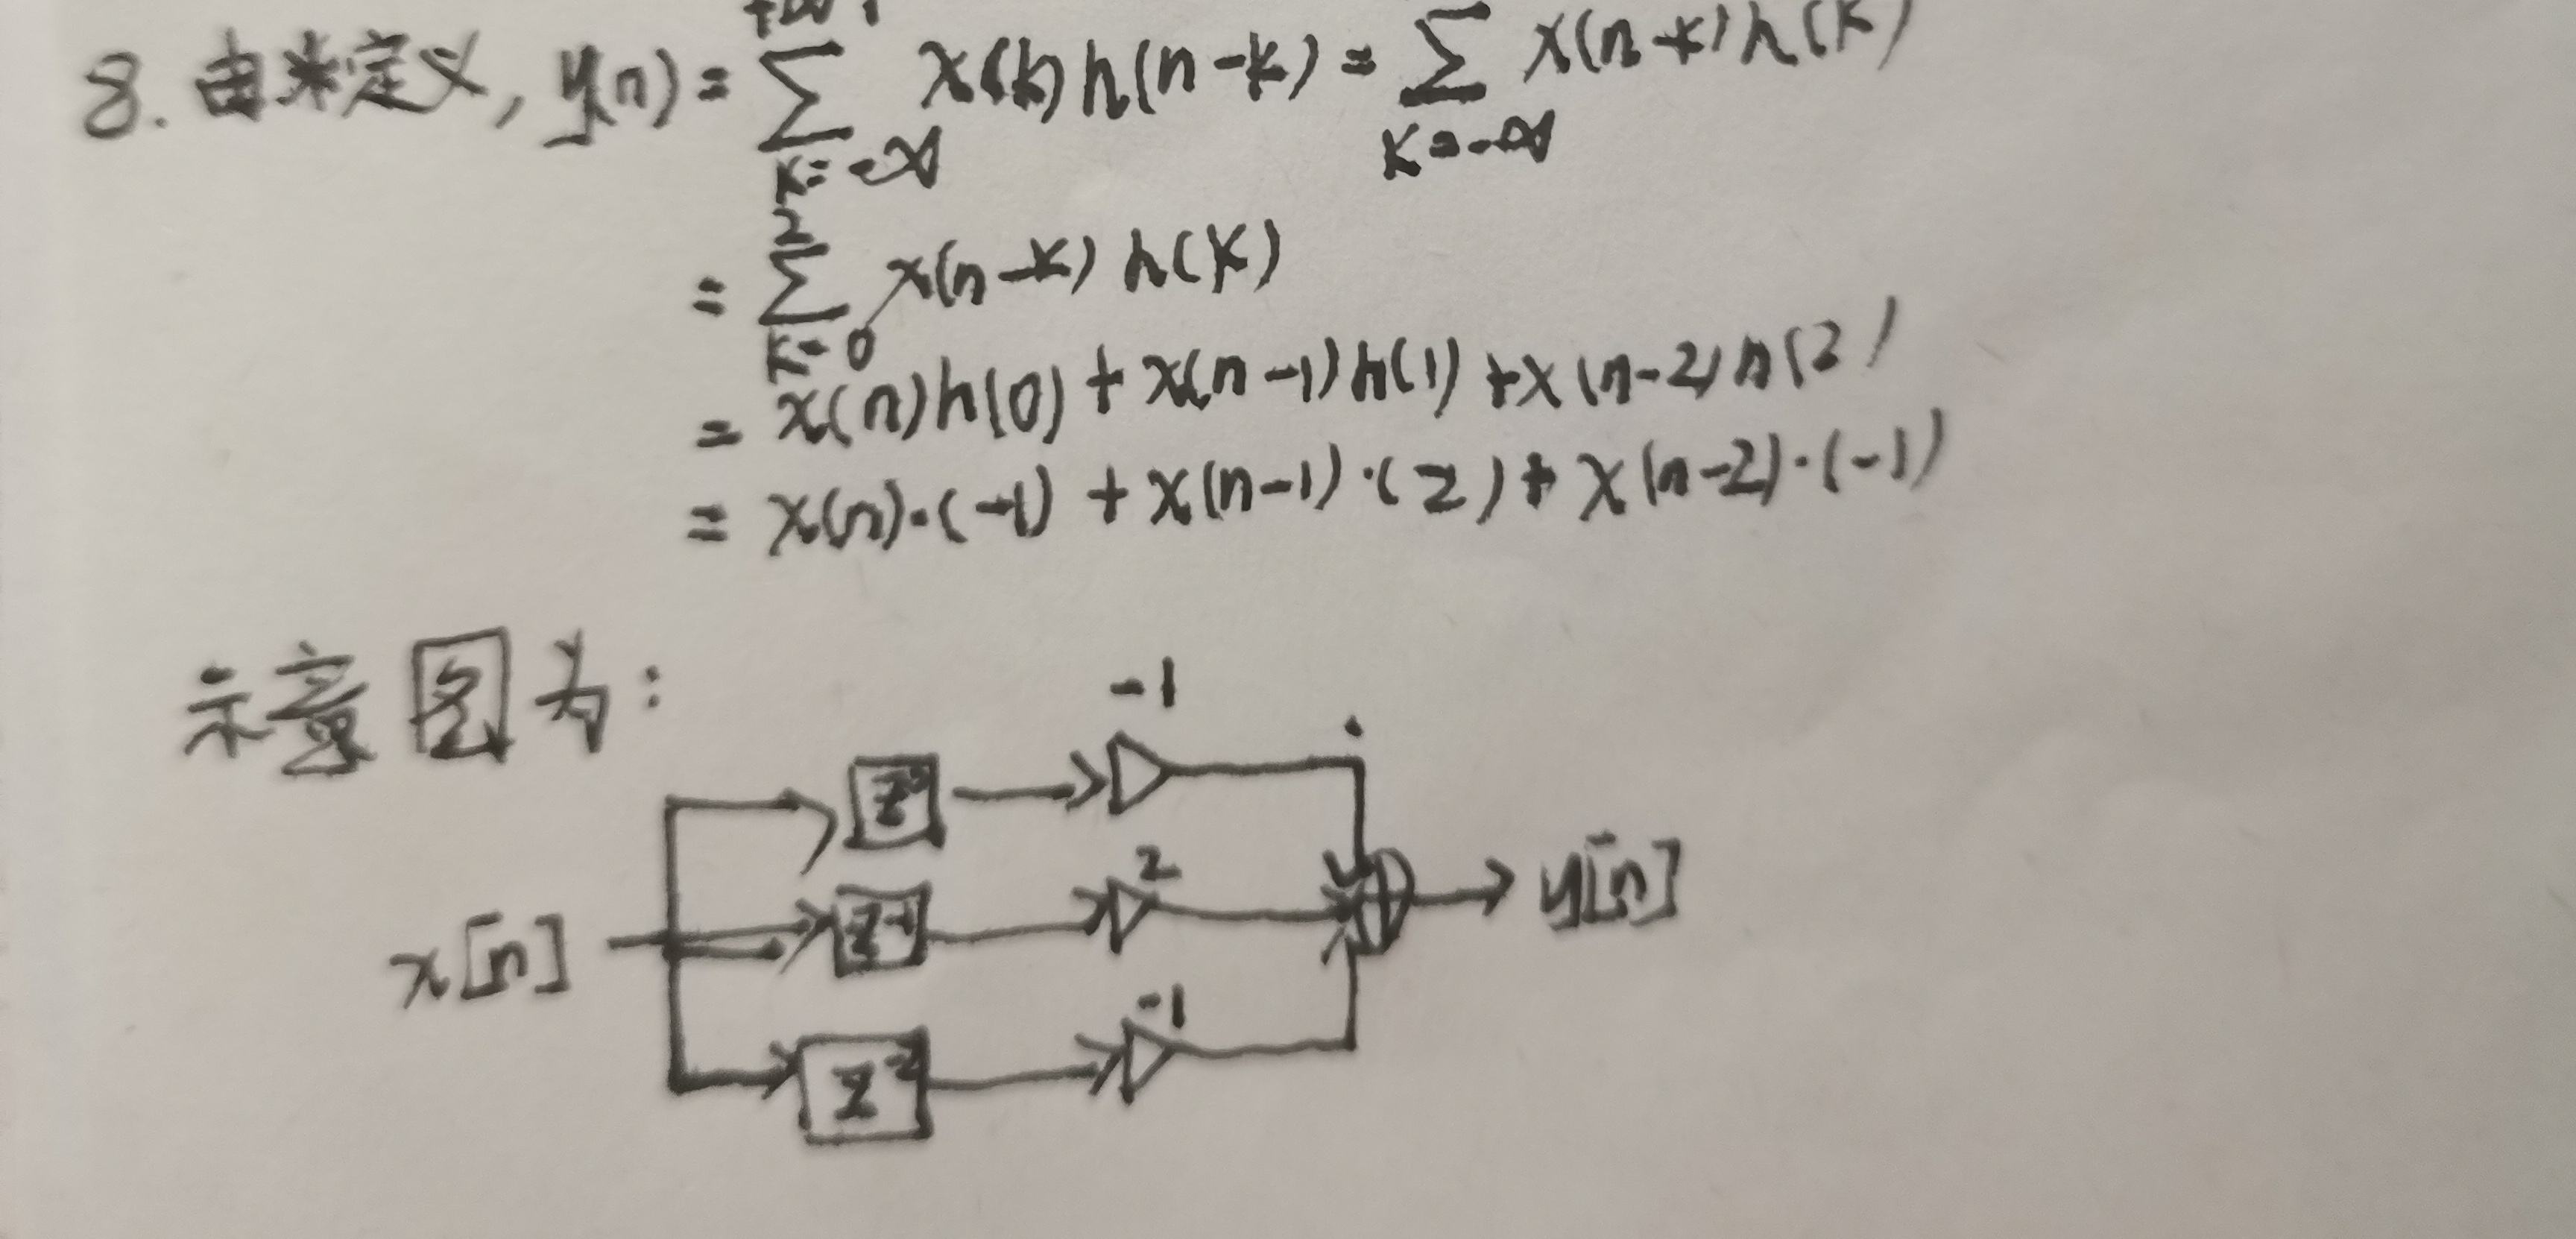 8. 由*定义, y(n) = ∑_{k=-∞}^{+∞} x(k) h(n-k) = ∑_{k=-∞} x(n-k) h(k)
= ∑_{k=0}^{2} x(n-k) h(k)
= x(n)h(0) + x(n-1)h(1) + x(n-2)h(2)
= x(n)·(-1) + x(n-1)·(2) + x(n-2)·(-1)
示意图为:
-1
z⁰
2
x[n] z⁻¹ y[n]
-1
z⁻²